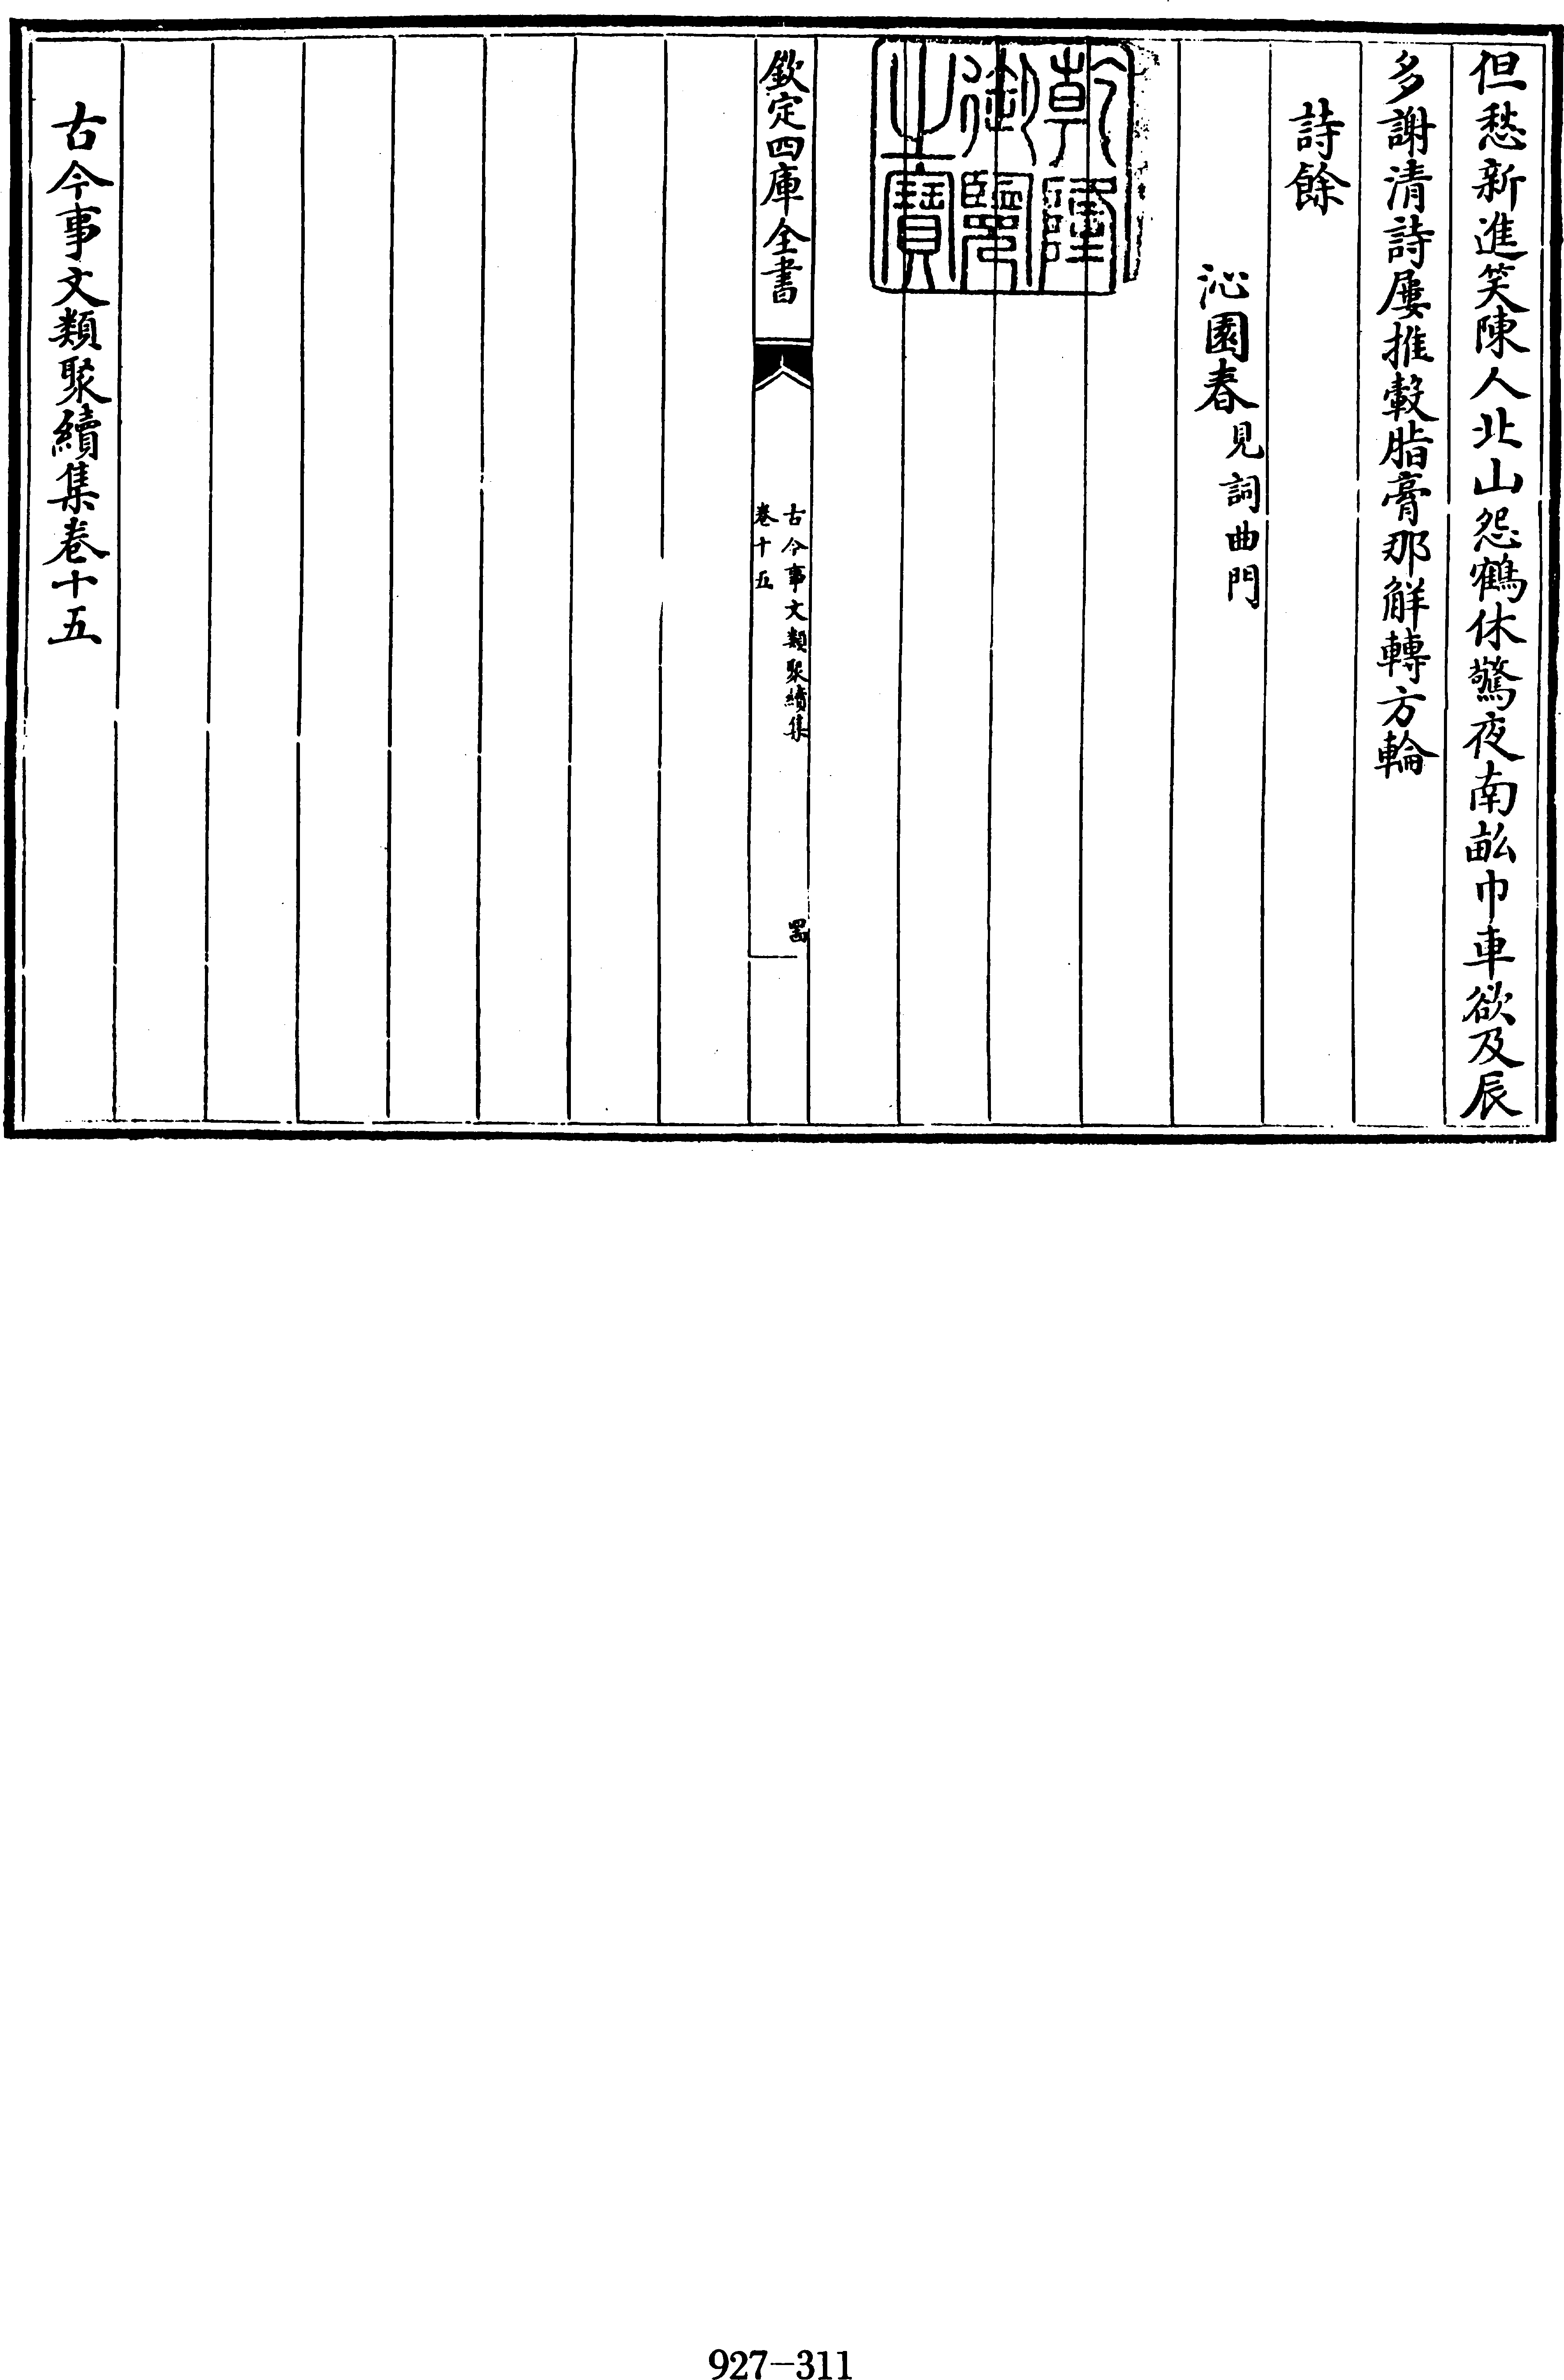 但愁新進笑陳人北山怨鶴休驚夜南畝巾車欲及辰
多謝清詩屢推轂脂膏那解轉方輪
詩餘
沁園春見詞曲門
乾隆
御覽
之寶
欽定四庫全書
古今事文類聚續集
卷十五
罟
古今事文類聚續集卷十五
927-311